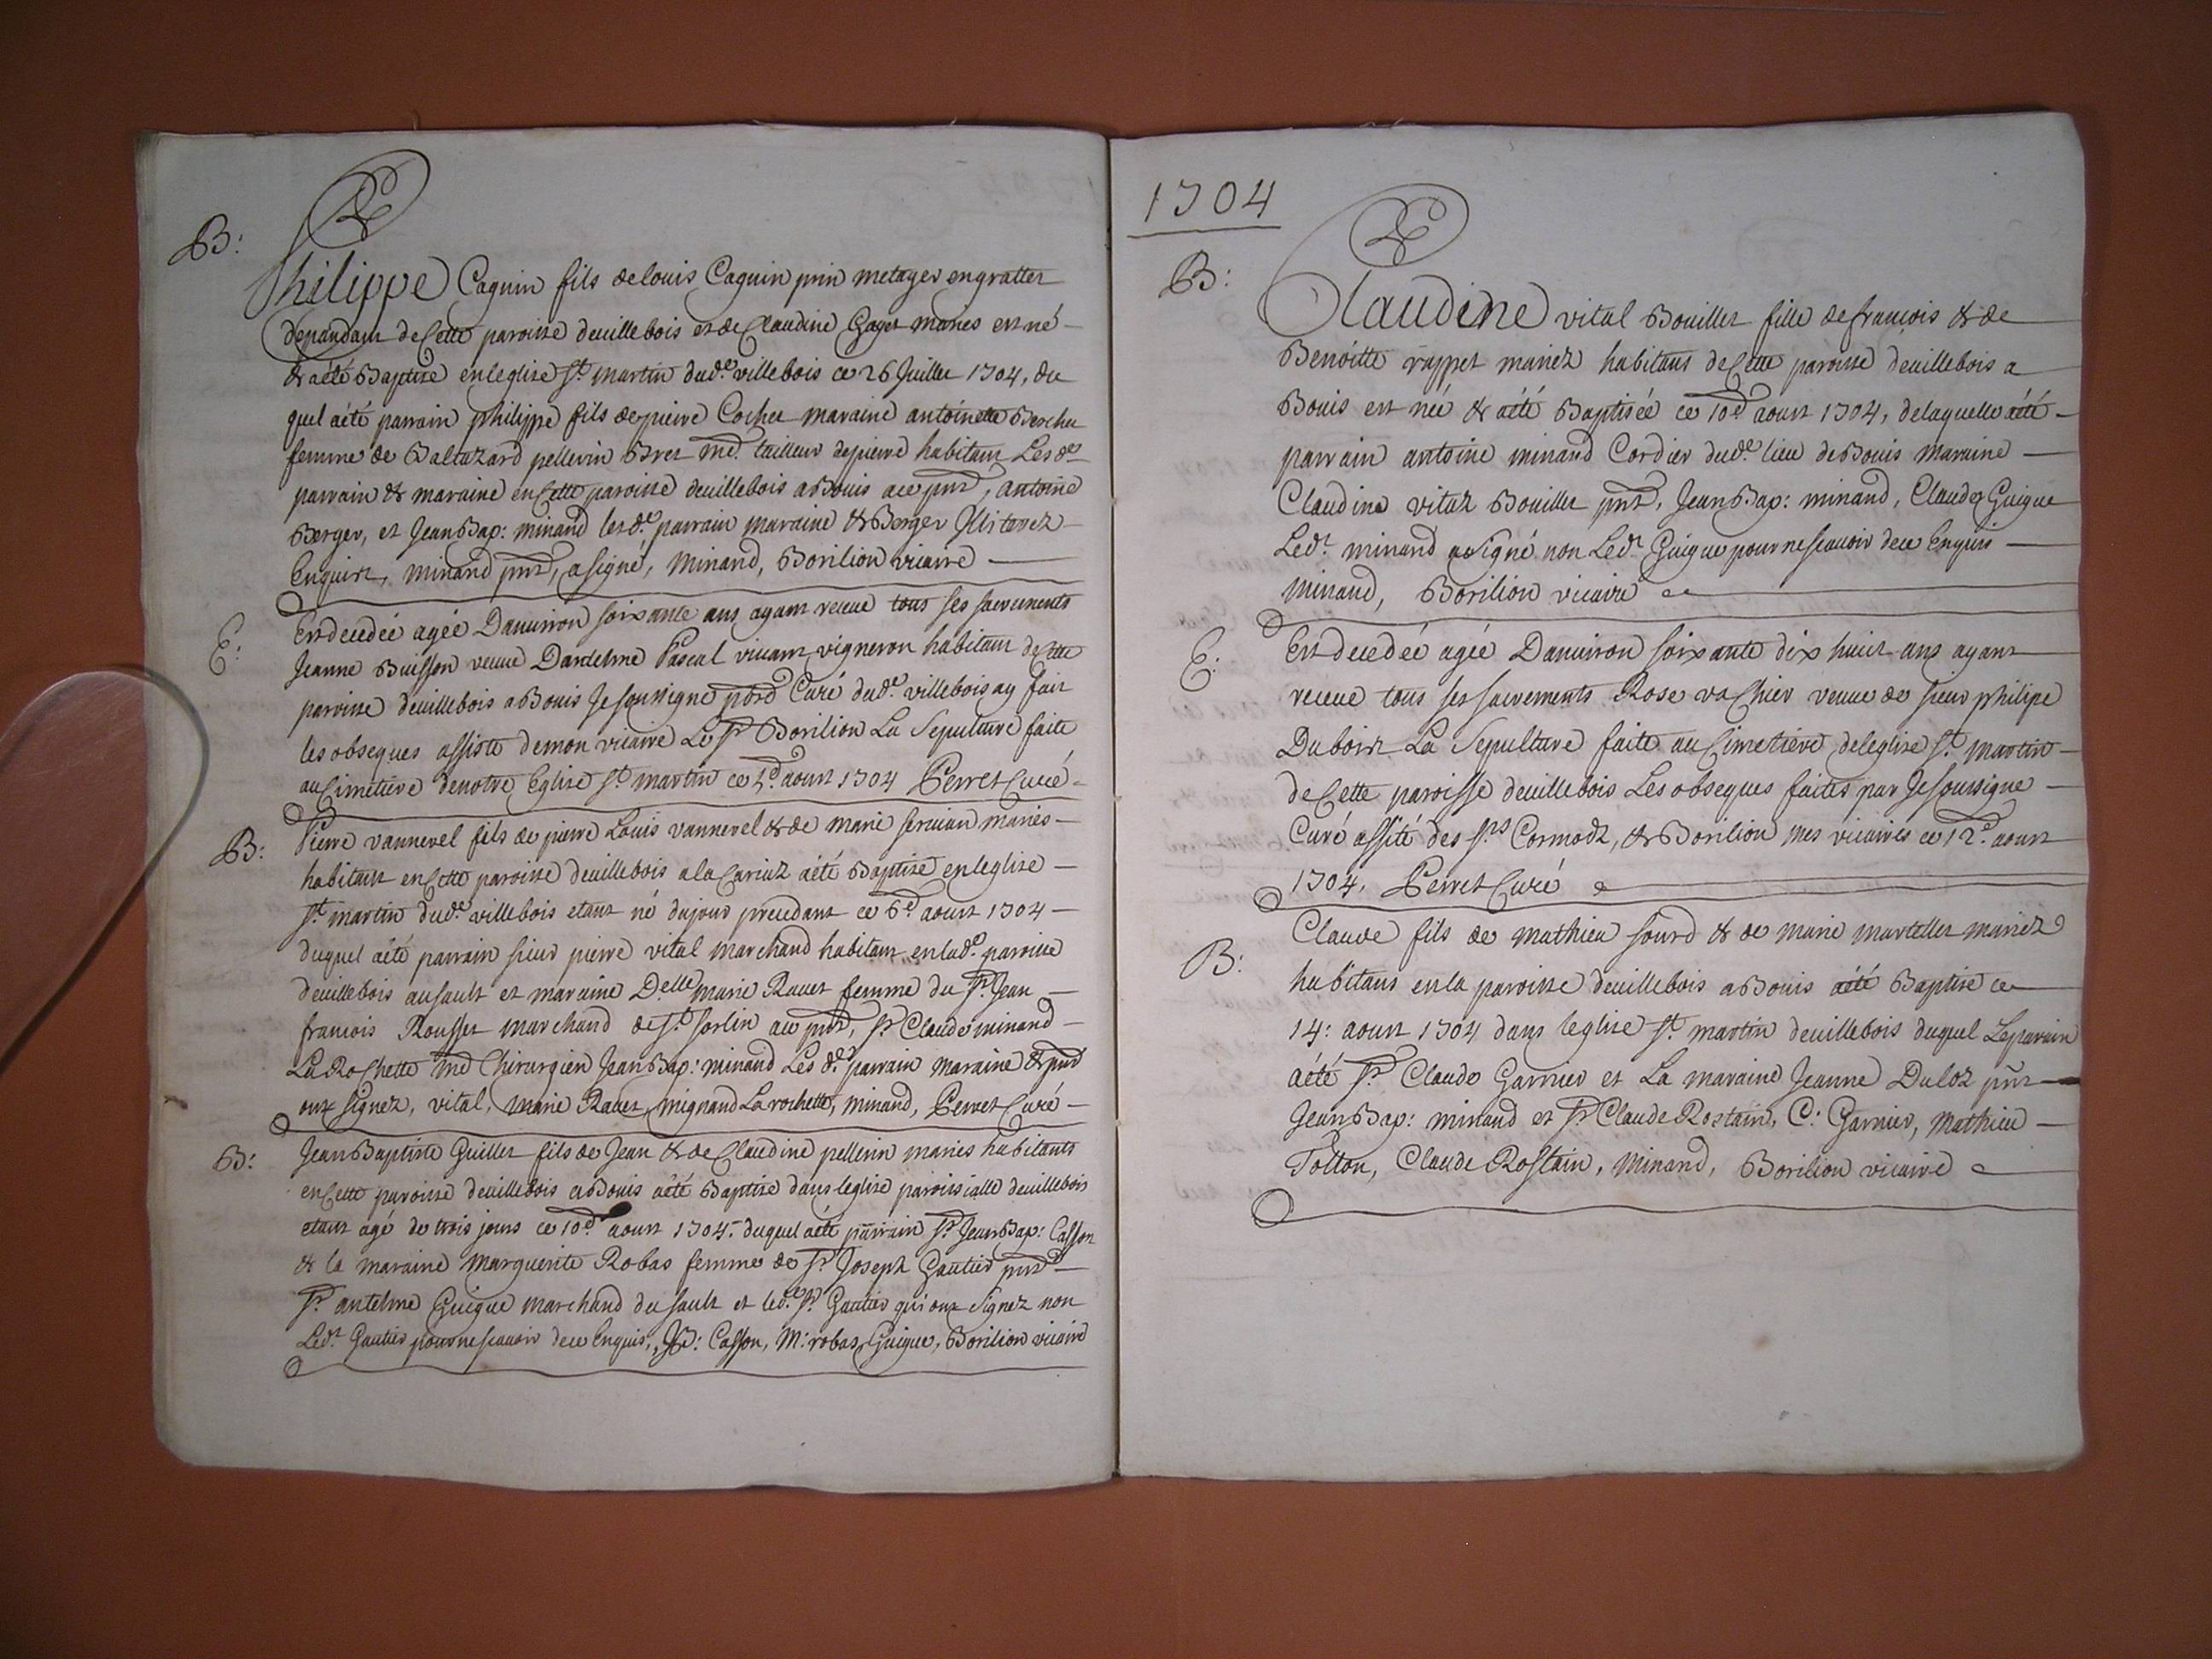 B:
Philippe Caquin fils de louis Caquin prin metayer en gratter
dependant de Cette paroisse deuillebois et de Claudine Gayet mariés est né
& a été Baptisé en leglise St. martin dud.e villebois ce 26 Juillet 1704, du
quel a été parrain philippe fils de pierre Cochet maraine antoinette Berchu
femme de Baltazard pellerin Bret md. tailleur de pierre habitant Les d.es
parrain & maraine en Cette paroisse deuillebois a Bouis au pnt, antoine
Berger, et Jean Bap: minand lesd.es parrain maraine & Berger Illiterez
Enquist, minand pnt, a signé, Minand, Borilion vicaire
E:
Est decedée agée Danuiron soixante ans ayant receue tous ses sacrements
Jeanne Buisson veuue Dantelme Pascal viuant vigneron habitant de Cette
paroisse deuillebois a Bouis Je soussigne pbre Curé dud.e villebois ay fait
les obseques assisté de mon vicaire Le Sr. Borilion La Sepulture faite
au Cimetiere de notre Eglise St. martin ce 5.d aoust 1704 Perret Curé
B:
Pierre vannevel fils de pierre Louis vannevel & de marie seruian mariés
habitant en Cette paroisse deuillebois a la Cariaz a été Baptisé en leglise
St. martin dud.e villebois etant né du jour precedant ce 6.d aoust 1704
duquel a été parrain sieur pierre vital marchand habitant en lad.e paroisse
deuillebois au sault et maraine D.elle marie Rauet femme du Sr. Jean
francois Rousset marchand de St. sorlin au pnt, Sr. Claude minand
La Rochette md Chirurgien Jean Bap: minand Les d.es parrain maraine & pnt
ont signez, vital, Marie Rauet, mignand La rochette, minand, Perret Curé
B:
Jean Baptiste Guillet fils de Jean & de Claudine pellerin mariés habitants
en Cette paroisse deuillebois a Bouis a été Baptisé dans leglise paroissialle deuillebois
etant agé de trois jours ce 10.d aoust 1704. duquel a été parrain Sr. Jean Bap: Casson
& la maraine Marguerite Robas femme de Sr. Joseph Gautier pnt
Sr. antelme Guigue marchand du sault et led.t Sr. Gautier qui ont signez non
Led.t Gautier pour ne scauoir dece Enquis, JB: Casson, M: robas, Guigue, Borilion vicaire
1704
B:
Claudine vital Bouillet fille de francois & de
Benoitte rappet mariez habitans de Cette paroisse deuillebois a
Bouis est née & a été Baptisée ce 10.d aoust 1704, de laquelle a été
parrain antoine minand Cordier dud.e lieu de Bouis maraine
Claudine vitaz Bouillet pnt, Jean Bap: minand, Claude Guigue
Led.t minand a signé non Led.t Guigue pour ne scauoir dece Enquis
minand, Borilion vicaire
E:
Est decedée agée Danuiron soixante dix huit ans ayant
receue tous ses sacrements Rose vachier veuue de sieur philipe
Duboist La Sepulture faite au Cimetiere de leglise St. martin
de Cette paroisse deuillebois Les obseques faites par Je soussigne
Curé assité des Srs Cormodz, & Borilion mes vicaires ce 12.d aoust
1704. Perret Curé
B:
Claude fils de mathieu sourd & de marie martellet mariez
habitans en la paroisse deuillebois a Bouis a été Baptisé ce
14: aoust 1704 dans leglise St. martin deuillebois duquel Le parain
a été Sr. Claude Garnier et La maraine Jeanne Duloz pnt
Jean Bap: minand et Sr. Claude Rostain, C: Garnier, Mathieu
Tolton, Claude Rostain, Minand, Borilion vicaire